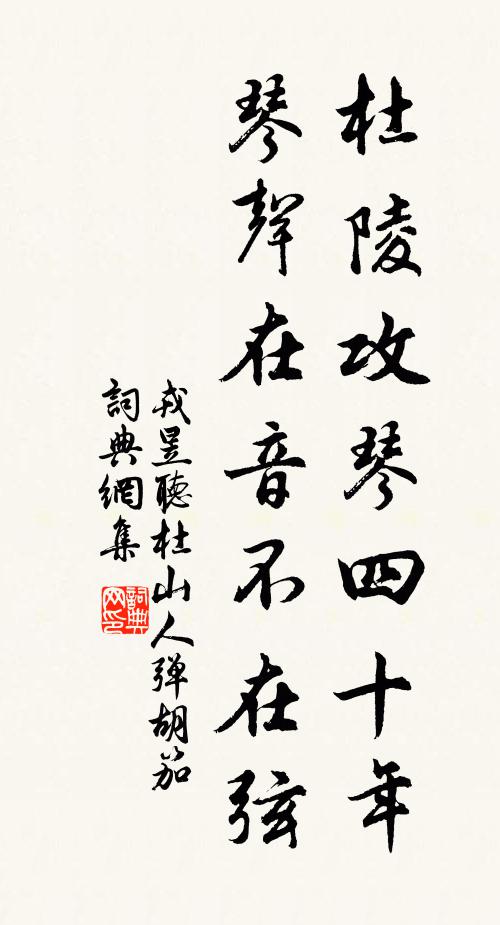 杜陵攻琴四十年
琴聲在音不在弦
戎昱聽杜山人彈胡笳
詞典網集
詞典
网印